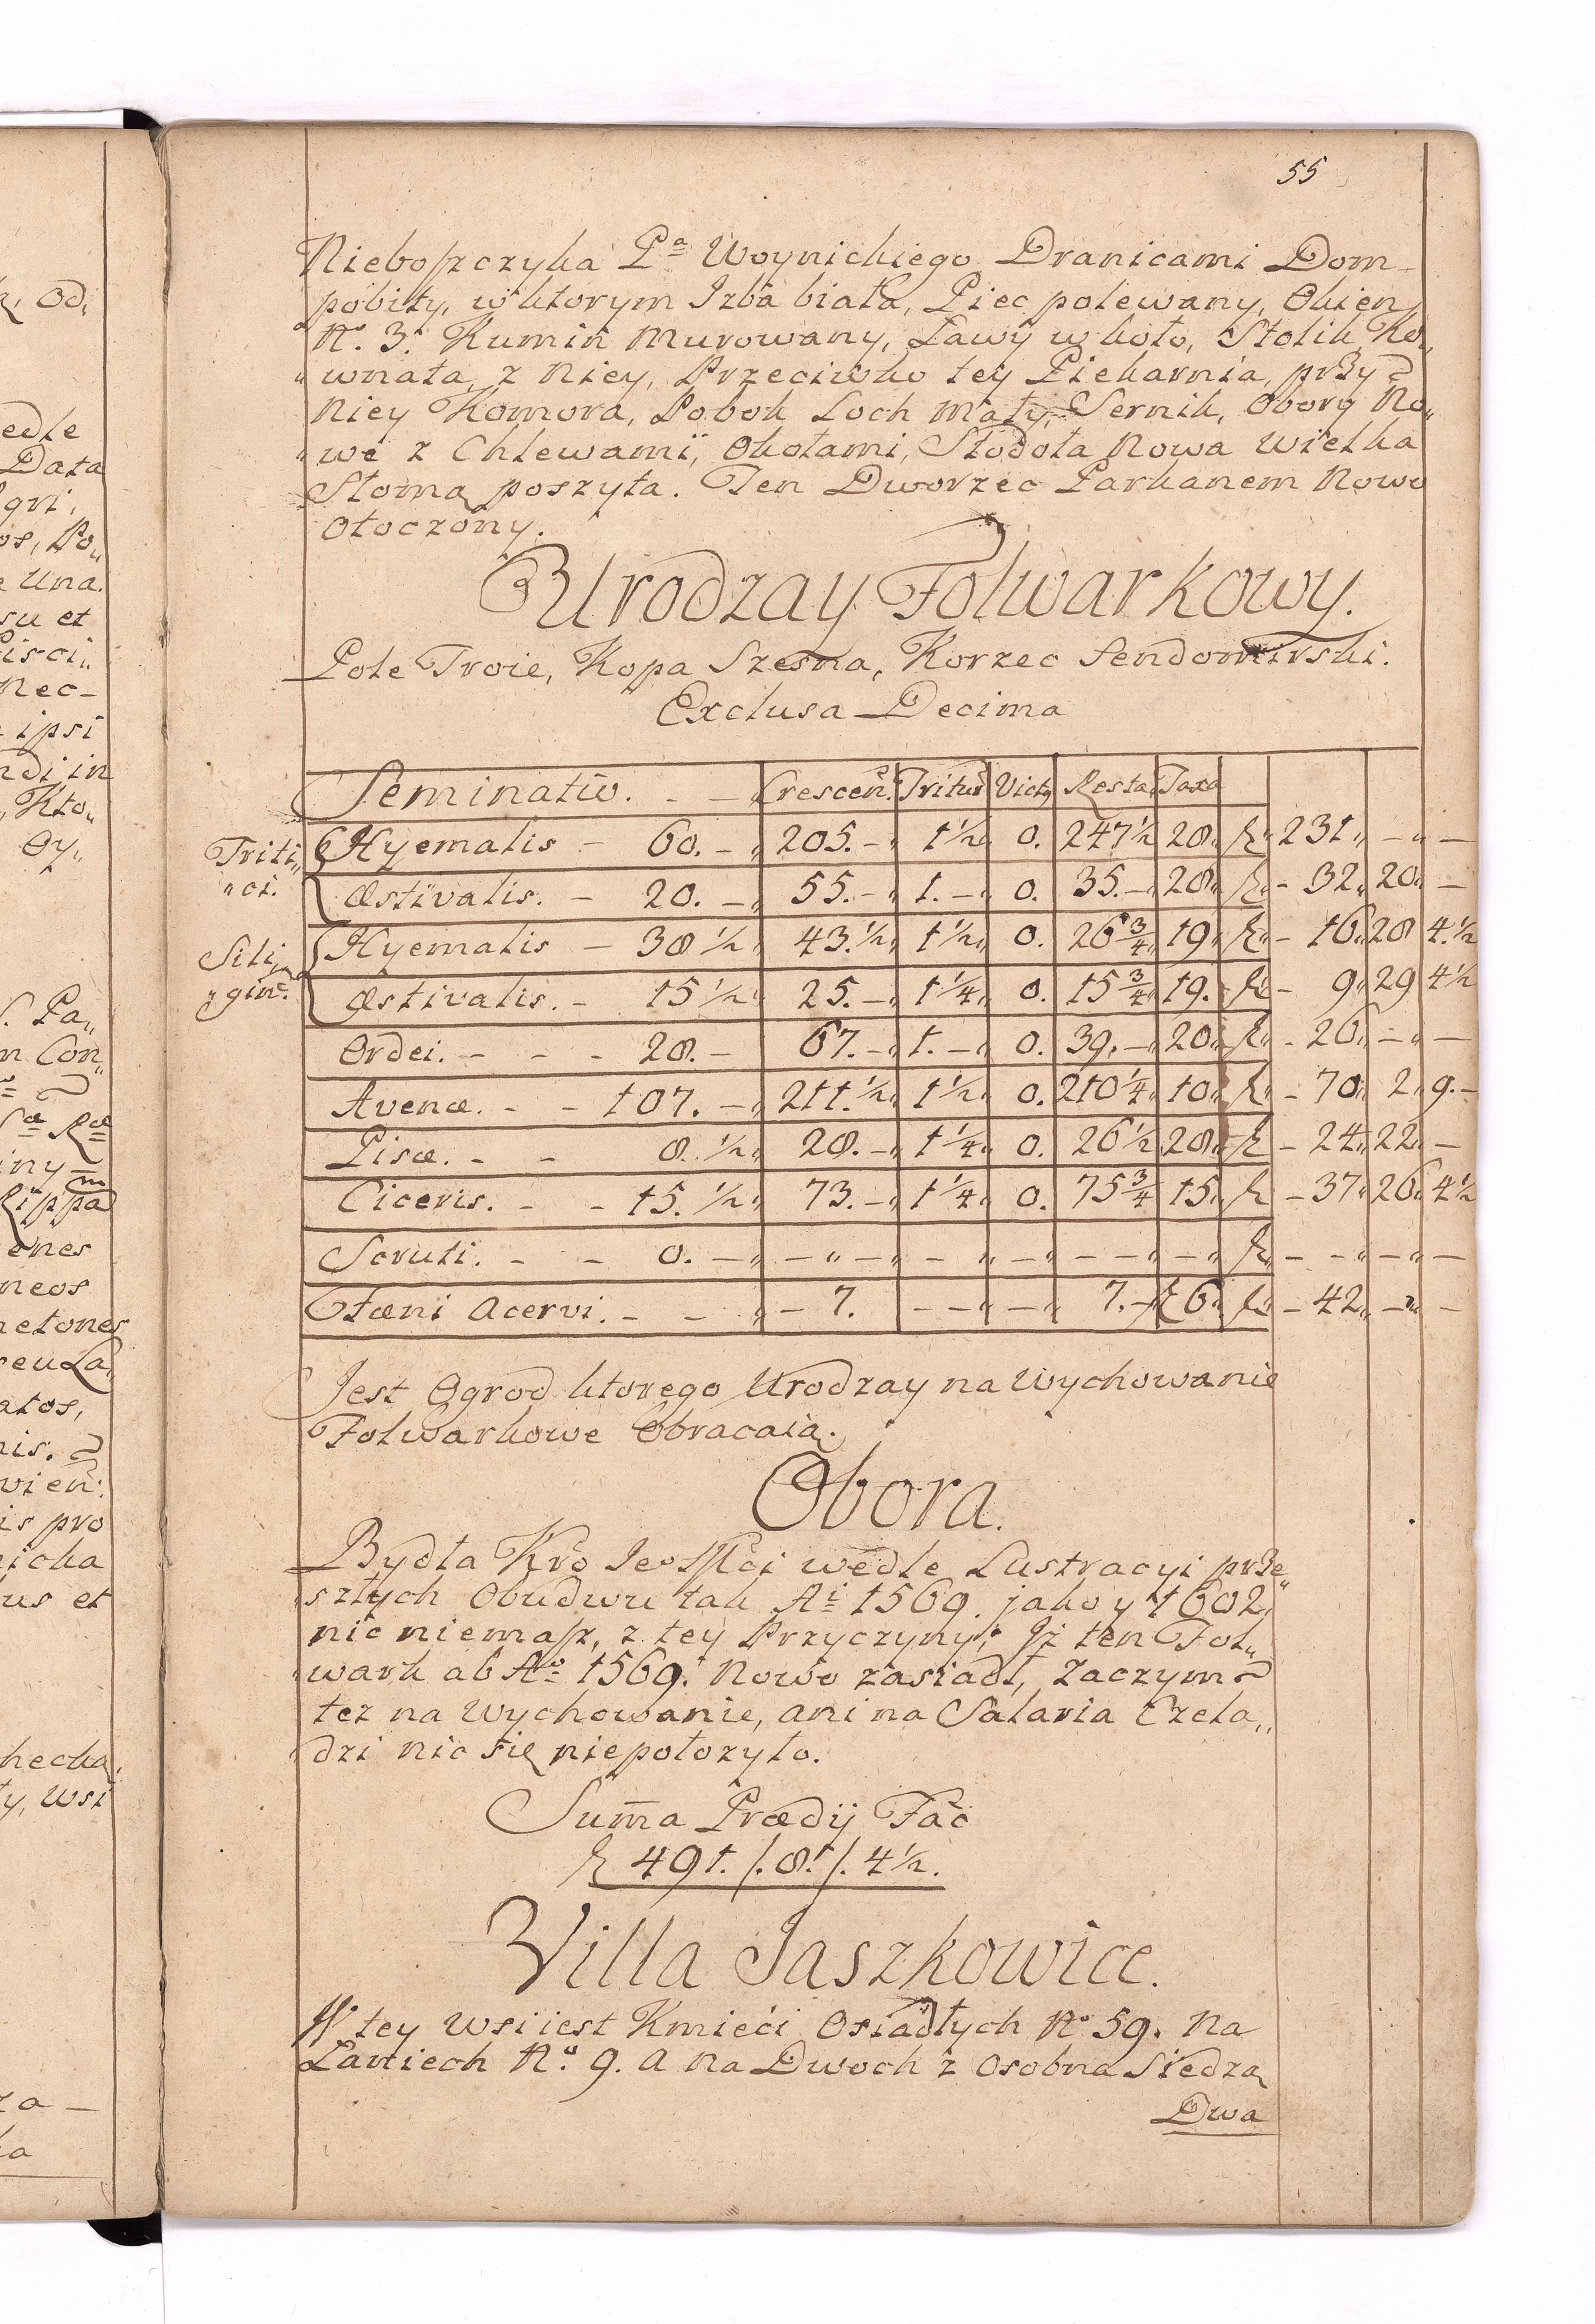 55
Niebosczyka Pª Woynickiego Dranicami Dom
pobity, w ktorym Izba biała, Piec polewany, Okien
Nº. 3. Kumin Murowany, Ławy w koło, Stolik Ko„
„wnata, z Niey, Przeciwko tey Piekarnia, przy
Niey Komora, Pobok Loch Mały, Sernik, Obory No„
„we z Chlewami, Okołami, Stodoła Nowa Wielka
Słomą poszyta. Ten Dworzec Parkanem Nowo
Otoczony.
Urodzay Folwarkowy.
Pole Troie, Kopa Szesna, Korzec Sendomirski.
Exclusa Decima
Seminatio. - - Crescen. Tritur Vict Resta Taxa
Triti„ Hyemalis - 60. - 205. - 1½ 0. 247½ 28 231 - -
„ci. Æstivalis. - 20. - 55. - 1. - 0. 35. - 28 - 32 20 -
Sili„ Hyemalis - 38½ 43.½ 1½ 0. 26¾ 19 - 16 28 4.½
„gin. Æstivalis. - 15½ 25. - 1¼ 0. 15¾ 19. - 9 29 4½
Ordei. - - - 28. - 67. - 1. - 0. 39. - 20 - 26 - -
Avenæ. - - 107. - 211.½ 1½ 0. 210¼ 10 - 70 2 9. -
Pisæ. - - 8.½ 28. - 1¼ 0. 26½ 28 - 24 22 -
Ciceris. - - 15.½ 73. - 1¼ 0. 75¾ 15 - 37 26 4½
Scruti. - - 0. - - - - - - - - - - - -
Fæni Acervi. - - - 7. - - - 7. - 6 - 42 - -
Jest Ogrod ktorego Urodzay na Wychowanie
Folwarkowe Obracaią.
Obora.
Bydła Kro Ieo Mci wedle Lustracyi prze„
szłych Obudwu tak Ai 1569. jako y 1602
nic niemasz, z tey Przyczyny, Iż ten Fol„
„wark ab Aº 1569. Nowo zasiadł, Zaczym
też na Wychowanie, ani na Salaria Czela„
dzi nic się niepołozyło.
Suma Prædij Fac
491. /. 8. /. 4½.
Villa Jaszkowice.
W tey Wsi iest Kmieci Osiadłych Nº 59. Na
Łaniech Nº. 9. A na Dwoch z osobna Siedzą
Dwa